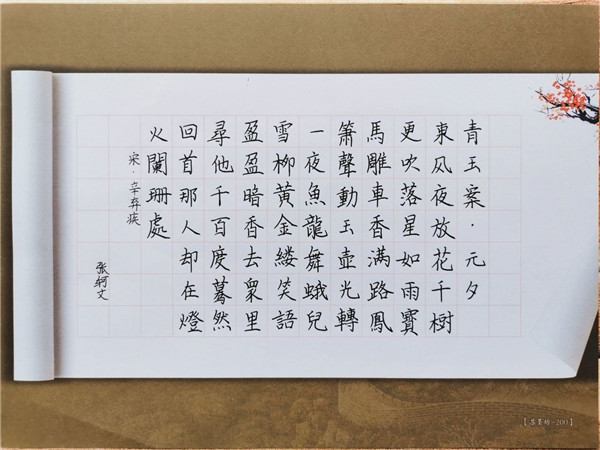 青玉案·元夕
東风夜放花千樹
更吹落星如雨寶
馬雕車香满路鳳
簫聲動玉壶光轉
一夜魚龍舞蛾兒
雪柳黄金缕笑語
盈盈暗香去衆里
尋他千百度驀然
回首那人却在燈
火闌珊處
宋·辛弃疾
张轲文